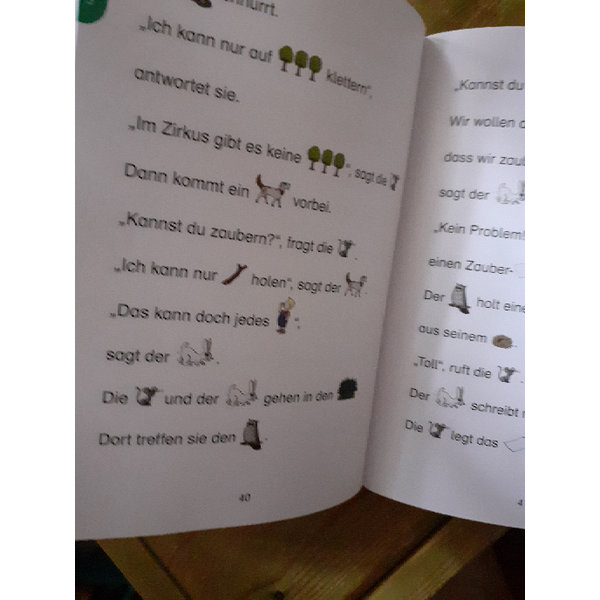 „Ich kann nur auf klettern“,
antwortet sie.
„Im Zirkus gibt es keine “, sagt die
Dann kommt ein vorbei.
„Kannst du zaubern?“, fragt die .
„Ich kann nur holen“, sagt der .
„Das kann doch jedes “,
sagt der .
Die und der gehen in den
Dort treffen sie den .
40
„Kannst du
Wir wollen
dass wir
sagt der
„Kein Problem!
einen Zauber-
Der holt eine
aus seinem .
„Toll“, ruft die .
Der schreibt
Die legt das
4